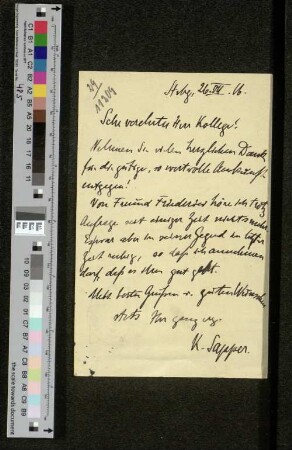 24
11309
Stbg., 26. VI. 16.
Sehr verehrter Herr Kollege!
Nehmen Sie vielen herzlichen Dank
für die gütige, so wertvolle Auskunft
entgegen!
Von Freund Friederici höre ich trotz
Anfrage seit einiger Zeit nichts mehr.
aber in seiner Gegend
Zeit ruhig, so daß ich annehmen
darf, daß es ihm gut geht.
Mit besten Grüßen u. guten Wünschen
stets Ihr ganz erg.
K. Sapper.